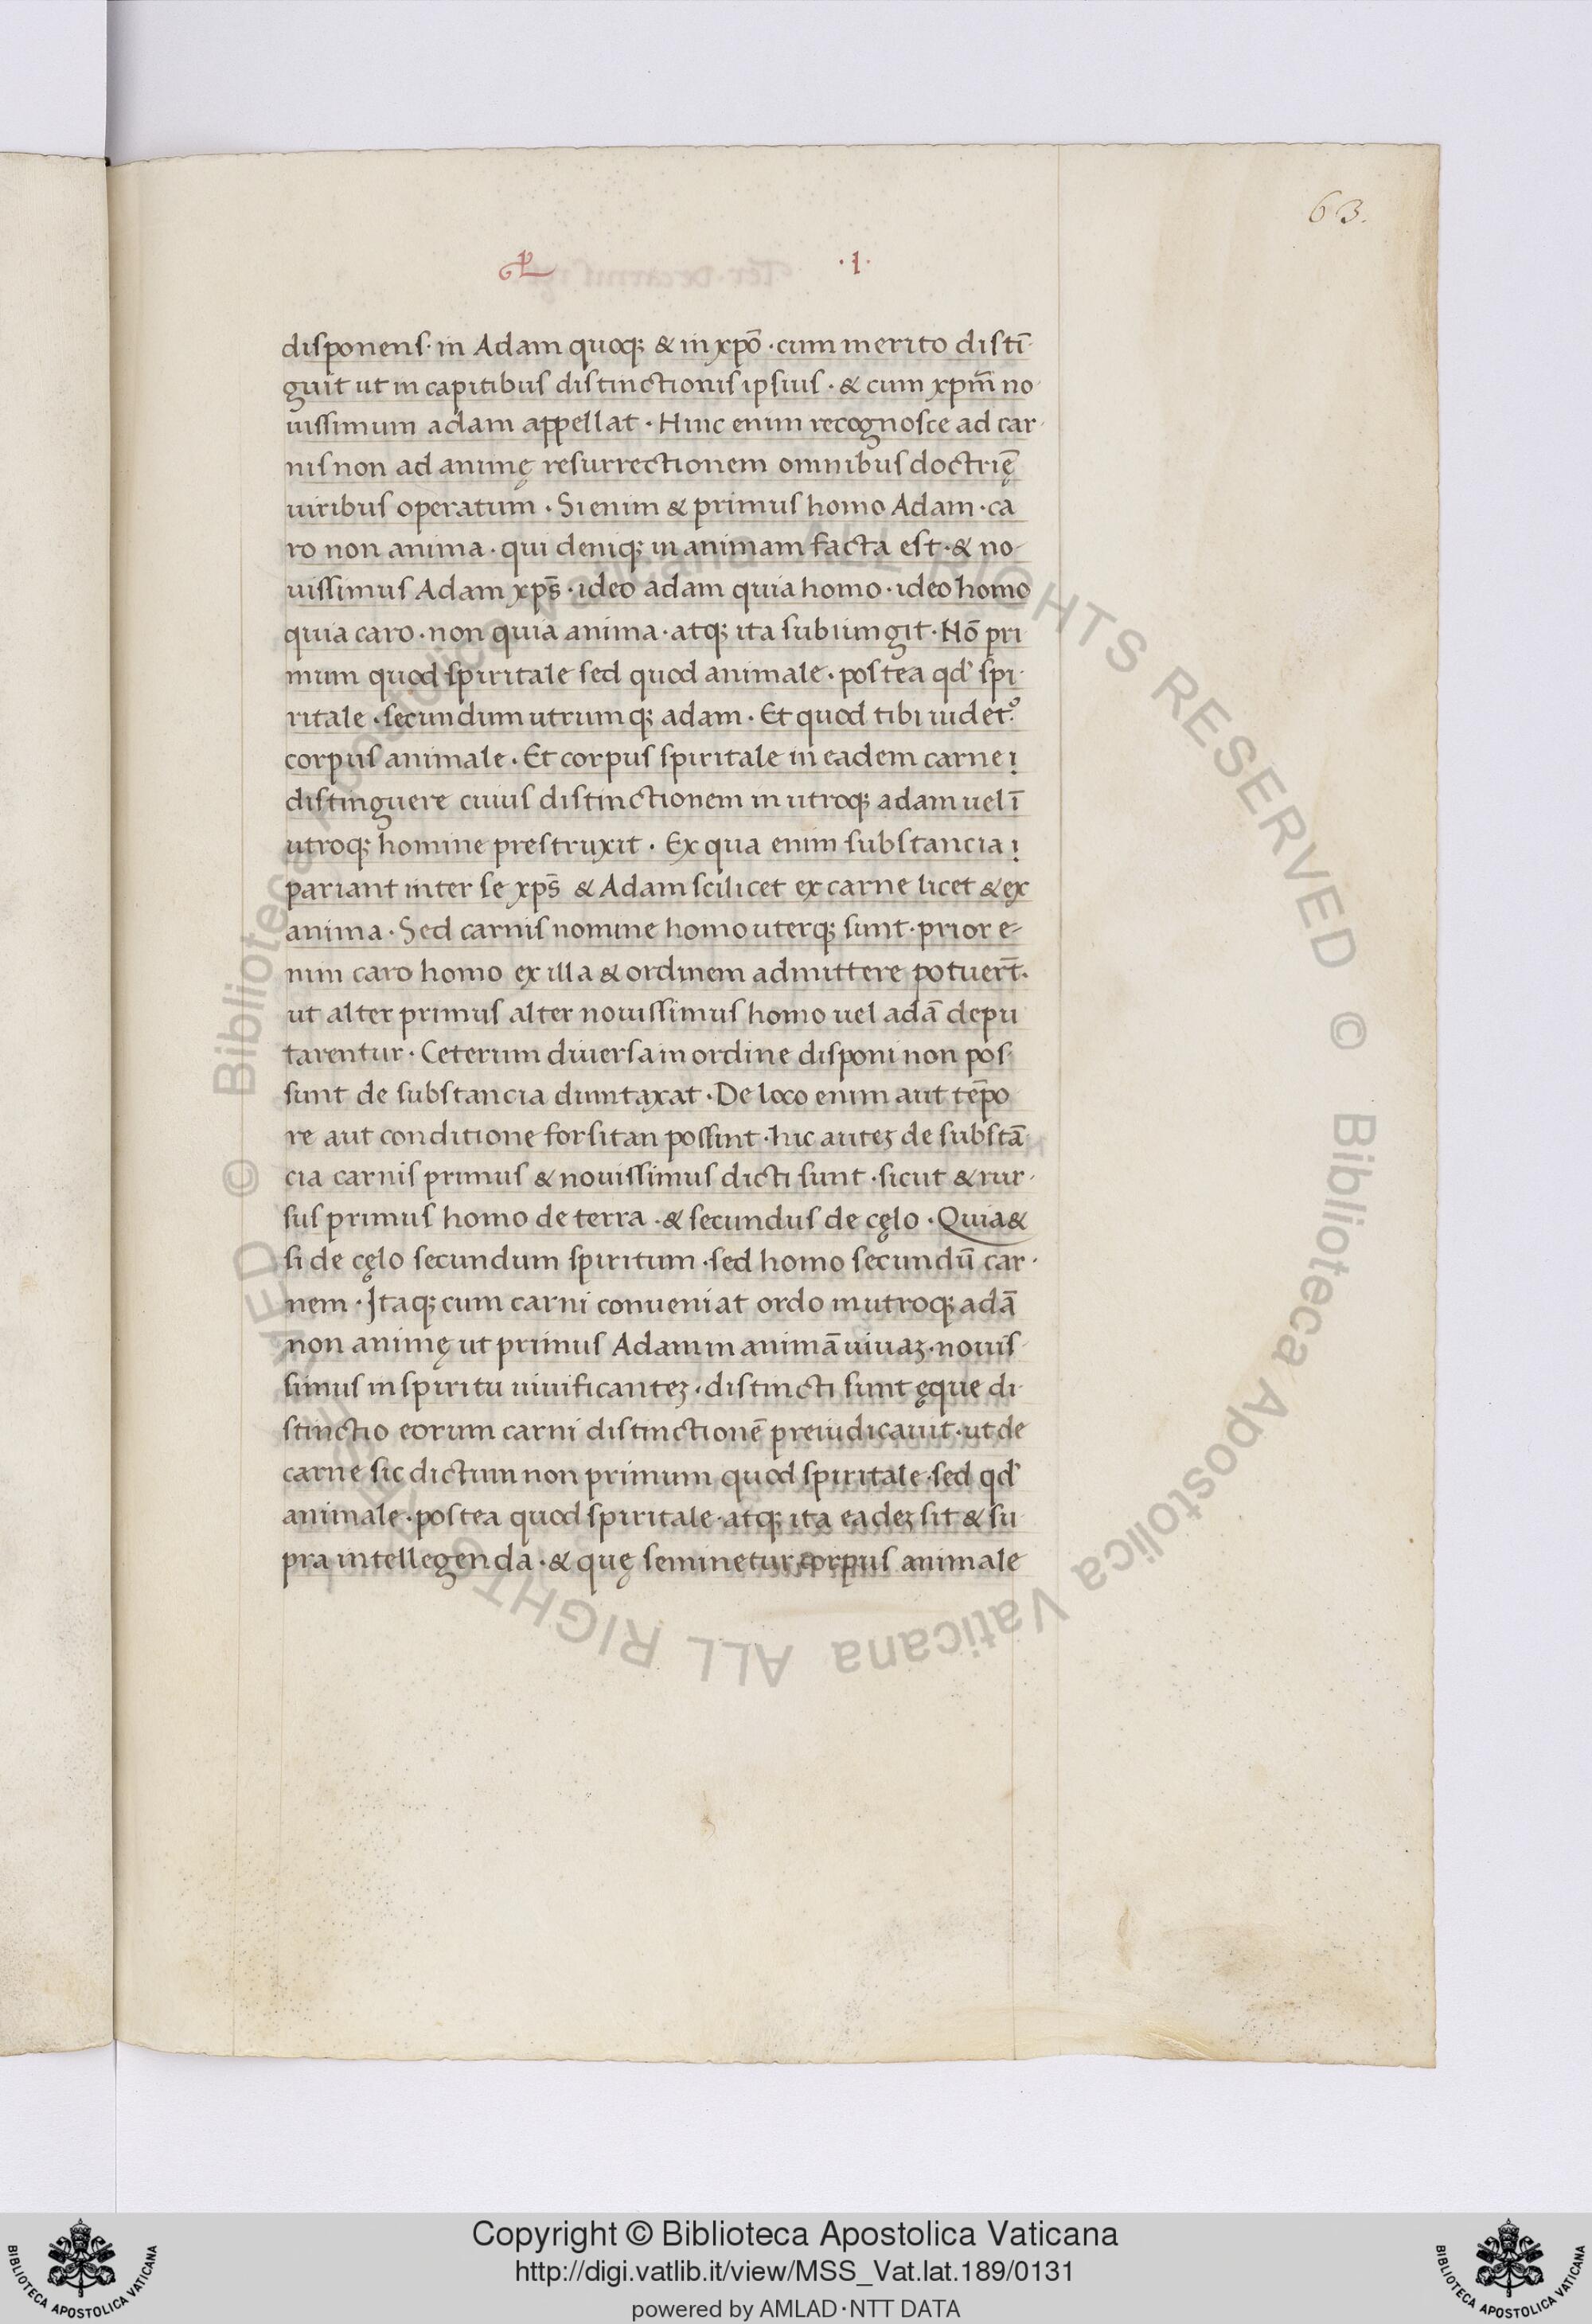 63.
·1·
disponens· in Adam quoq; & in xpō · cum merito distī-
guit ut in capitibus distinctionis ipsius · & cum xpm̄ no-
uissimum adam appellat · Hinc enim recognosce ad car-
nis non ad animę resurrectionem omnibus doctrię̄
uiribus operatum · Si enim & primus homo Adam · ca
ro non anima · qui deniq; in animam facta est · & no-
uissimus Adam xps̄ · ideo adam quia homo · ideo homo
quia caro · non quia anima · atq; ita subiungit · Nō pri
mum quod spiritale sed quod animale · postea qđ spi-
ritale · secundum utrumq; adam · Et quod tibi uidet᷒
corpus animale · Et corpus spiritale in eadem carne ·
distinguere cuius distinctionem in utroq; adam uel ī
utroq; homine prestruxit · Ex qua enim substancia ·
pariant inter se xps̄ & Adam scilicet ex carne licet & ex
anima · Sed carnis nomine homo uterq; sunt · prior e-
nim caro homo ex illa & ordinem admittere potuert̄·
ut alter primus alter nouissimus homo uel adā depu
tarentur · Ceterum diuersa in ordine disponi non pos-
sunt de substancia duntaxat · De loco enim aut tēpo
re aut conditione forsitan possint · hic auteʒ de substā
cia carnis primus & nouissimus dicti sunt · sicut & rur-
sus primus homo de terra · & secundus de cęlo · Quia &
si de cęlo secundum spiritum · sed homo secundū car-
nem · Itaq; cum carni conueniat ordo in utroq; adā
non animę ut primus Adam in animā uiuaʒ · nouis-
simus in spiritu uiuificanteʒ · distincti sunt ęque di-
stinctio eorum carni distinctionē preiudicauit · ut de
carne sic dictum non primum quod spiritale · sed qđ
animale · postea quod spiritale · atq; ita eadeʒ sit & su
pra intellegenda · & quę seminetur corpus animale
© Biblioteca Apostolica Vaticana ALL RIGHTS RESERVED © Biblioteca Apostolica Vaticana ALL RIGHTS RESERVED
Copyright © Biblioteca Apostolica Vaticana
http://digi.vatlib.it/view/MSS_Vat.lat.189/0131
powered by AMLAD·NTT DATA
BIBLIOTECA APOSTOLICA VATICANA
BIBLIOTECA APOSTOLICA VATICANA